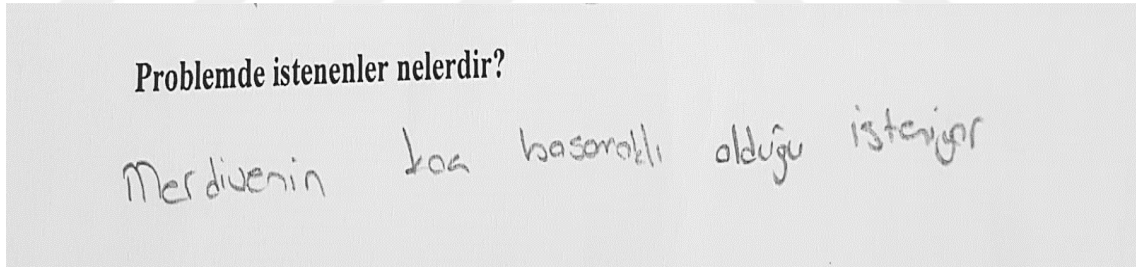 Problemde istenenler nelerdir?
Merdivenin kaç basamaklı olduğu isteniyor